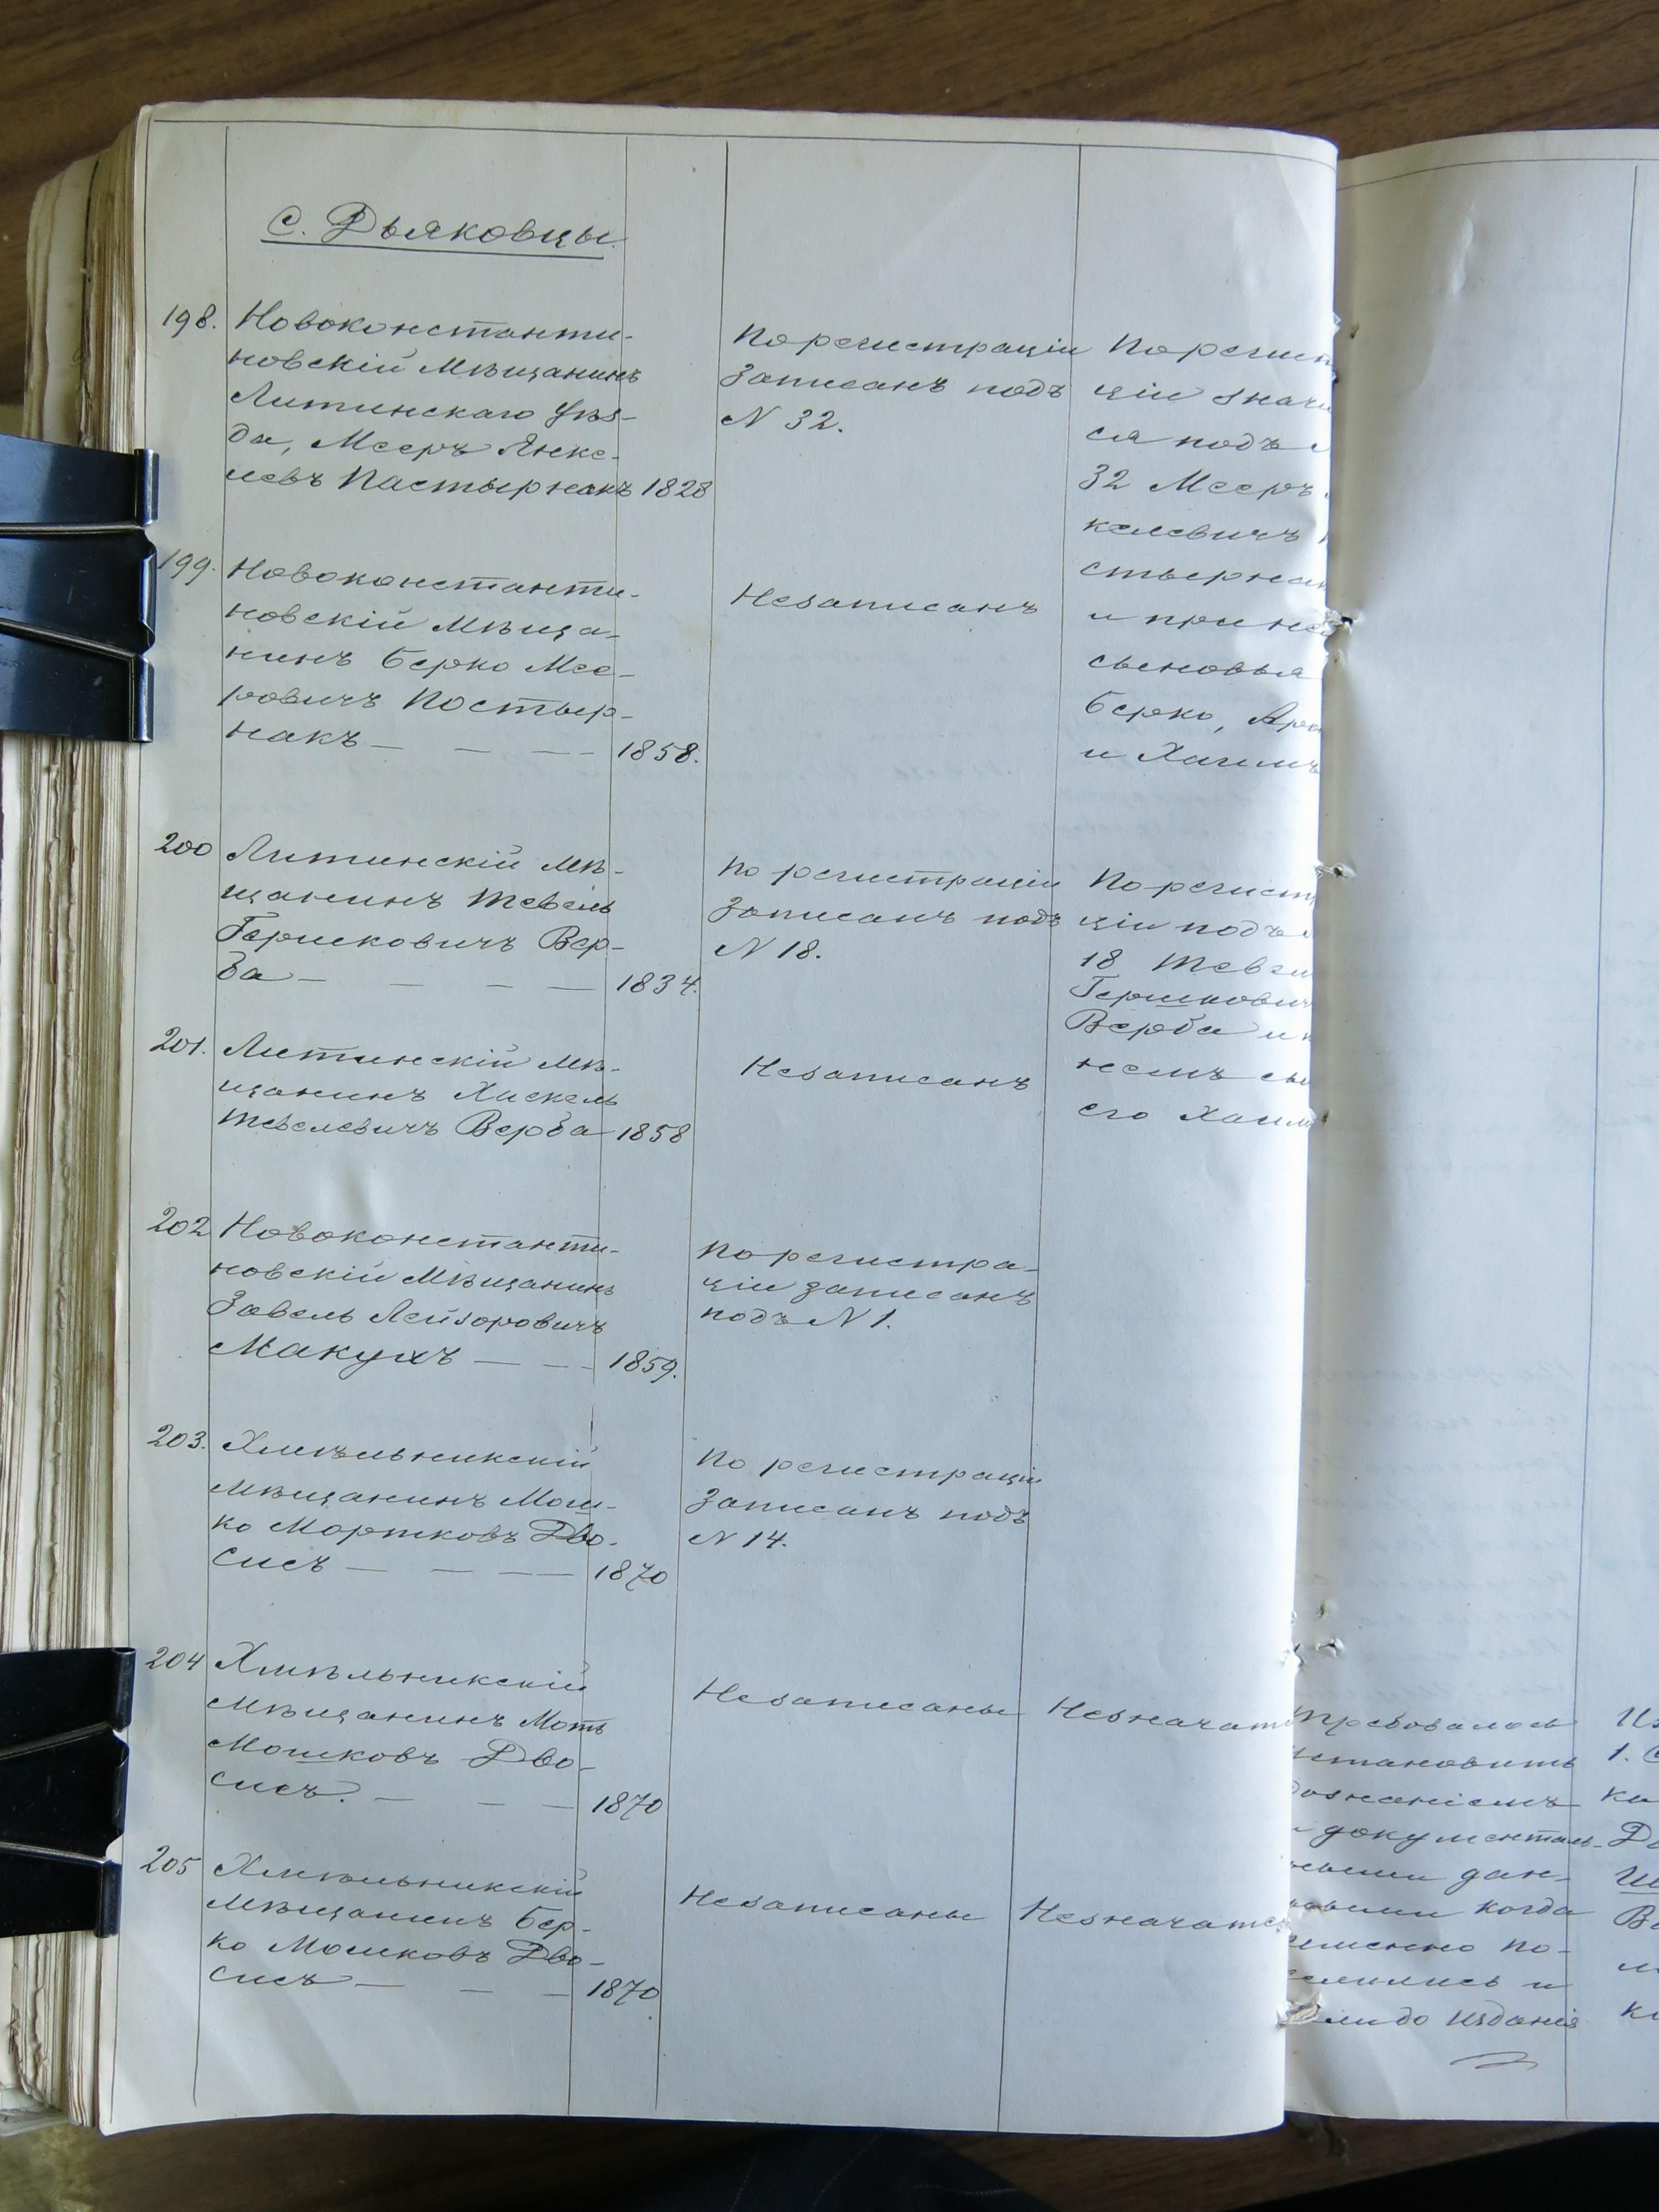 с. Дьяковцы
198. Новоконстанти-
новскій Мѣщанинъ
Литинскаго Уѣз-
да, Мееръ Янке-
левъ Пастырнакъ 1828
По регистраціи
записанъ подъ
N 32.
По регист
ціи значи
ся подъ
32 Мееръ
келевичъ
стырнак
и при не
сыновья
Берко, Аро
и Хаимъ
199. Новоконстанти-
новскій Мѣща-
нинъ Берко Мее-
ровичъ Постыр-
накъ — — — 1858.
Незаписанъ
200 Литинскій Мѣ-
щанинъ Тевель
Гершковичъ Вер-
ба — — — — 1834.
По регистраціи
записанъ подъ
N 18.
По регист
ціи подъ
18 Тевел
Гершкович
Верба и
немъ сы
его Хаим
201. Литинскій Мѣ-
щанинъ Хаскель
Тевелевичъ Верба 1858
Незаписанъ
202 Новоконстанти-
новскій Мѣщанинъ
Завель Лейзоровичъ
Макухъ — — — 1859.
По регистра-
ціи записанъ
подъ N 1.
203. Хмѣльникскій
Мѣщанинъ Мош-
ко Мортковъ Дво-
сисъ — — — 1870
По регистраціи
записанъ подъ
N 14.
204 Хмѣльникскій
Мѣщанинъ Моть
Мошковъ Дво-
сисъ. — — — 1870
Незаписаны
Незначатс
205 Хмѣльникскій
Мѣщанинъ Бер-
ко Мошковъ Дво-
сисъ — — — 1870
Незаписаны
Незначатс
Требовалось
становить
дознаніемъ
и документаль-
ными дан-
ными когда
именно по-
селились и
ли до изданія
Из
1. С
ка
Дв
Ш
Ве